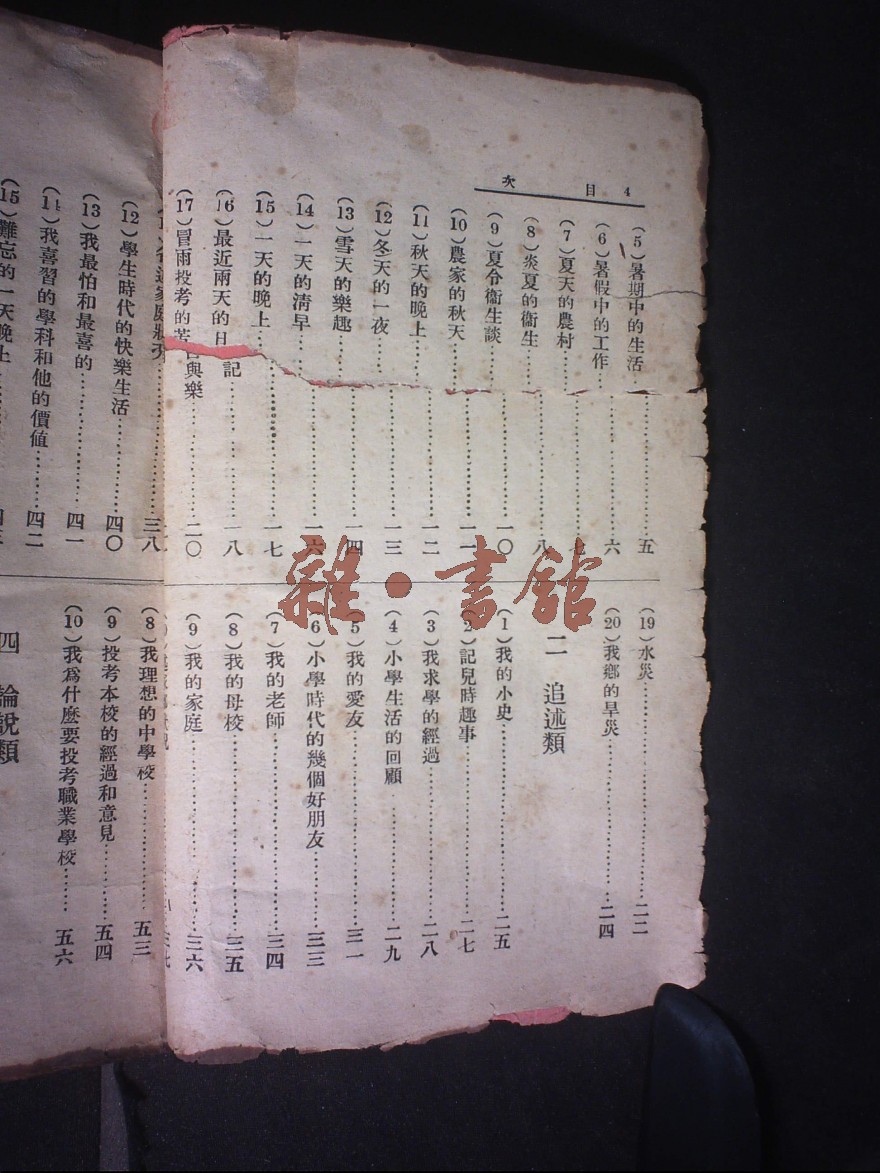 4 目次
(5)暑期中的生活……五
(6)暑假中的工作……六
(7)夏天的農村……七
(8)炎夏的衞生……八
(9)夏令衞生談……一〇
(10)農家的秋天……一一
(11)秋天的晚上……一二
(12)冬天的一夜……一三
(13)雪天的樂趣……一四
(14)一天的清早……一六
(15)一天的晚上……一七
(16)最近兩天的日記……一八
(17)冒雨投考的苦與樂……二〇
(19)水災……二二
(20)我鄉的旱災……二四
二 追述類
(1)我的小史……二五
(2)記兒時趣事……二七
(3)我求學的經過……二八
(4)小學生活的回顧……二九
(5)我的愛友……三一
(6)小學時代的幾個好朋友……三三
(7)我的老師……三四
(8)我的母校……三五
(9)我的家庭……三六
家庭狀況……三八
(12)學生時代的快樂生活……四〇
(13)我最怕和最喜的……四一
(14)我喜習的學科和他的價値……四二
(15)難忘的一天晚上
(8)我理想的中學校……五三
(9)投考本校的經過和意見……五四
(10)我爲什麼要投考職業學校……五六
四 論說類
雜·書館